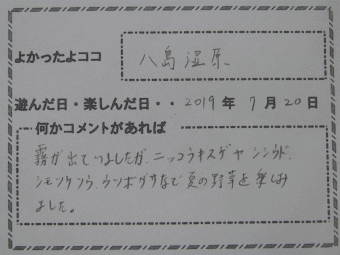 よかったよココ 八島湿原
遊んだ日・楽しんだ日・・2019年7月20日
何かコメントがあれば
霧が出ていましたが、ニッコウキスゲやシシウド、
シモツケソウ、ウツボグサなど夏の野草を楽しみ
ました。